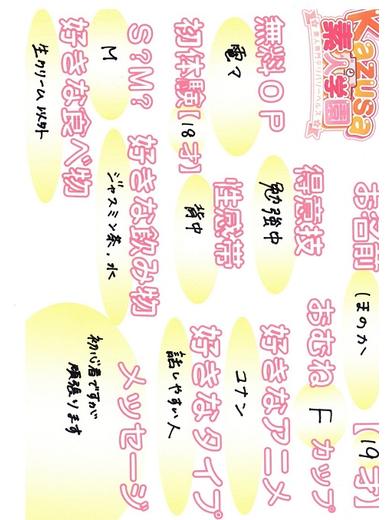 Kazusa
素人学園
お名前 ほのか 【19才】
おむね F カップ
得意技 勉強中
無料OP 電マ
初体験【18才】
性感帯 背中
好きなアニメ コナン
S?M? M
好きな飲み物 ジャスミン茶、水
好きなタイプ 話しやすい人
好きな食べ物 生クリーム以外
メッセージ
初心者ですが
頑張ります